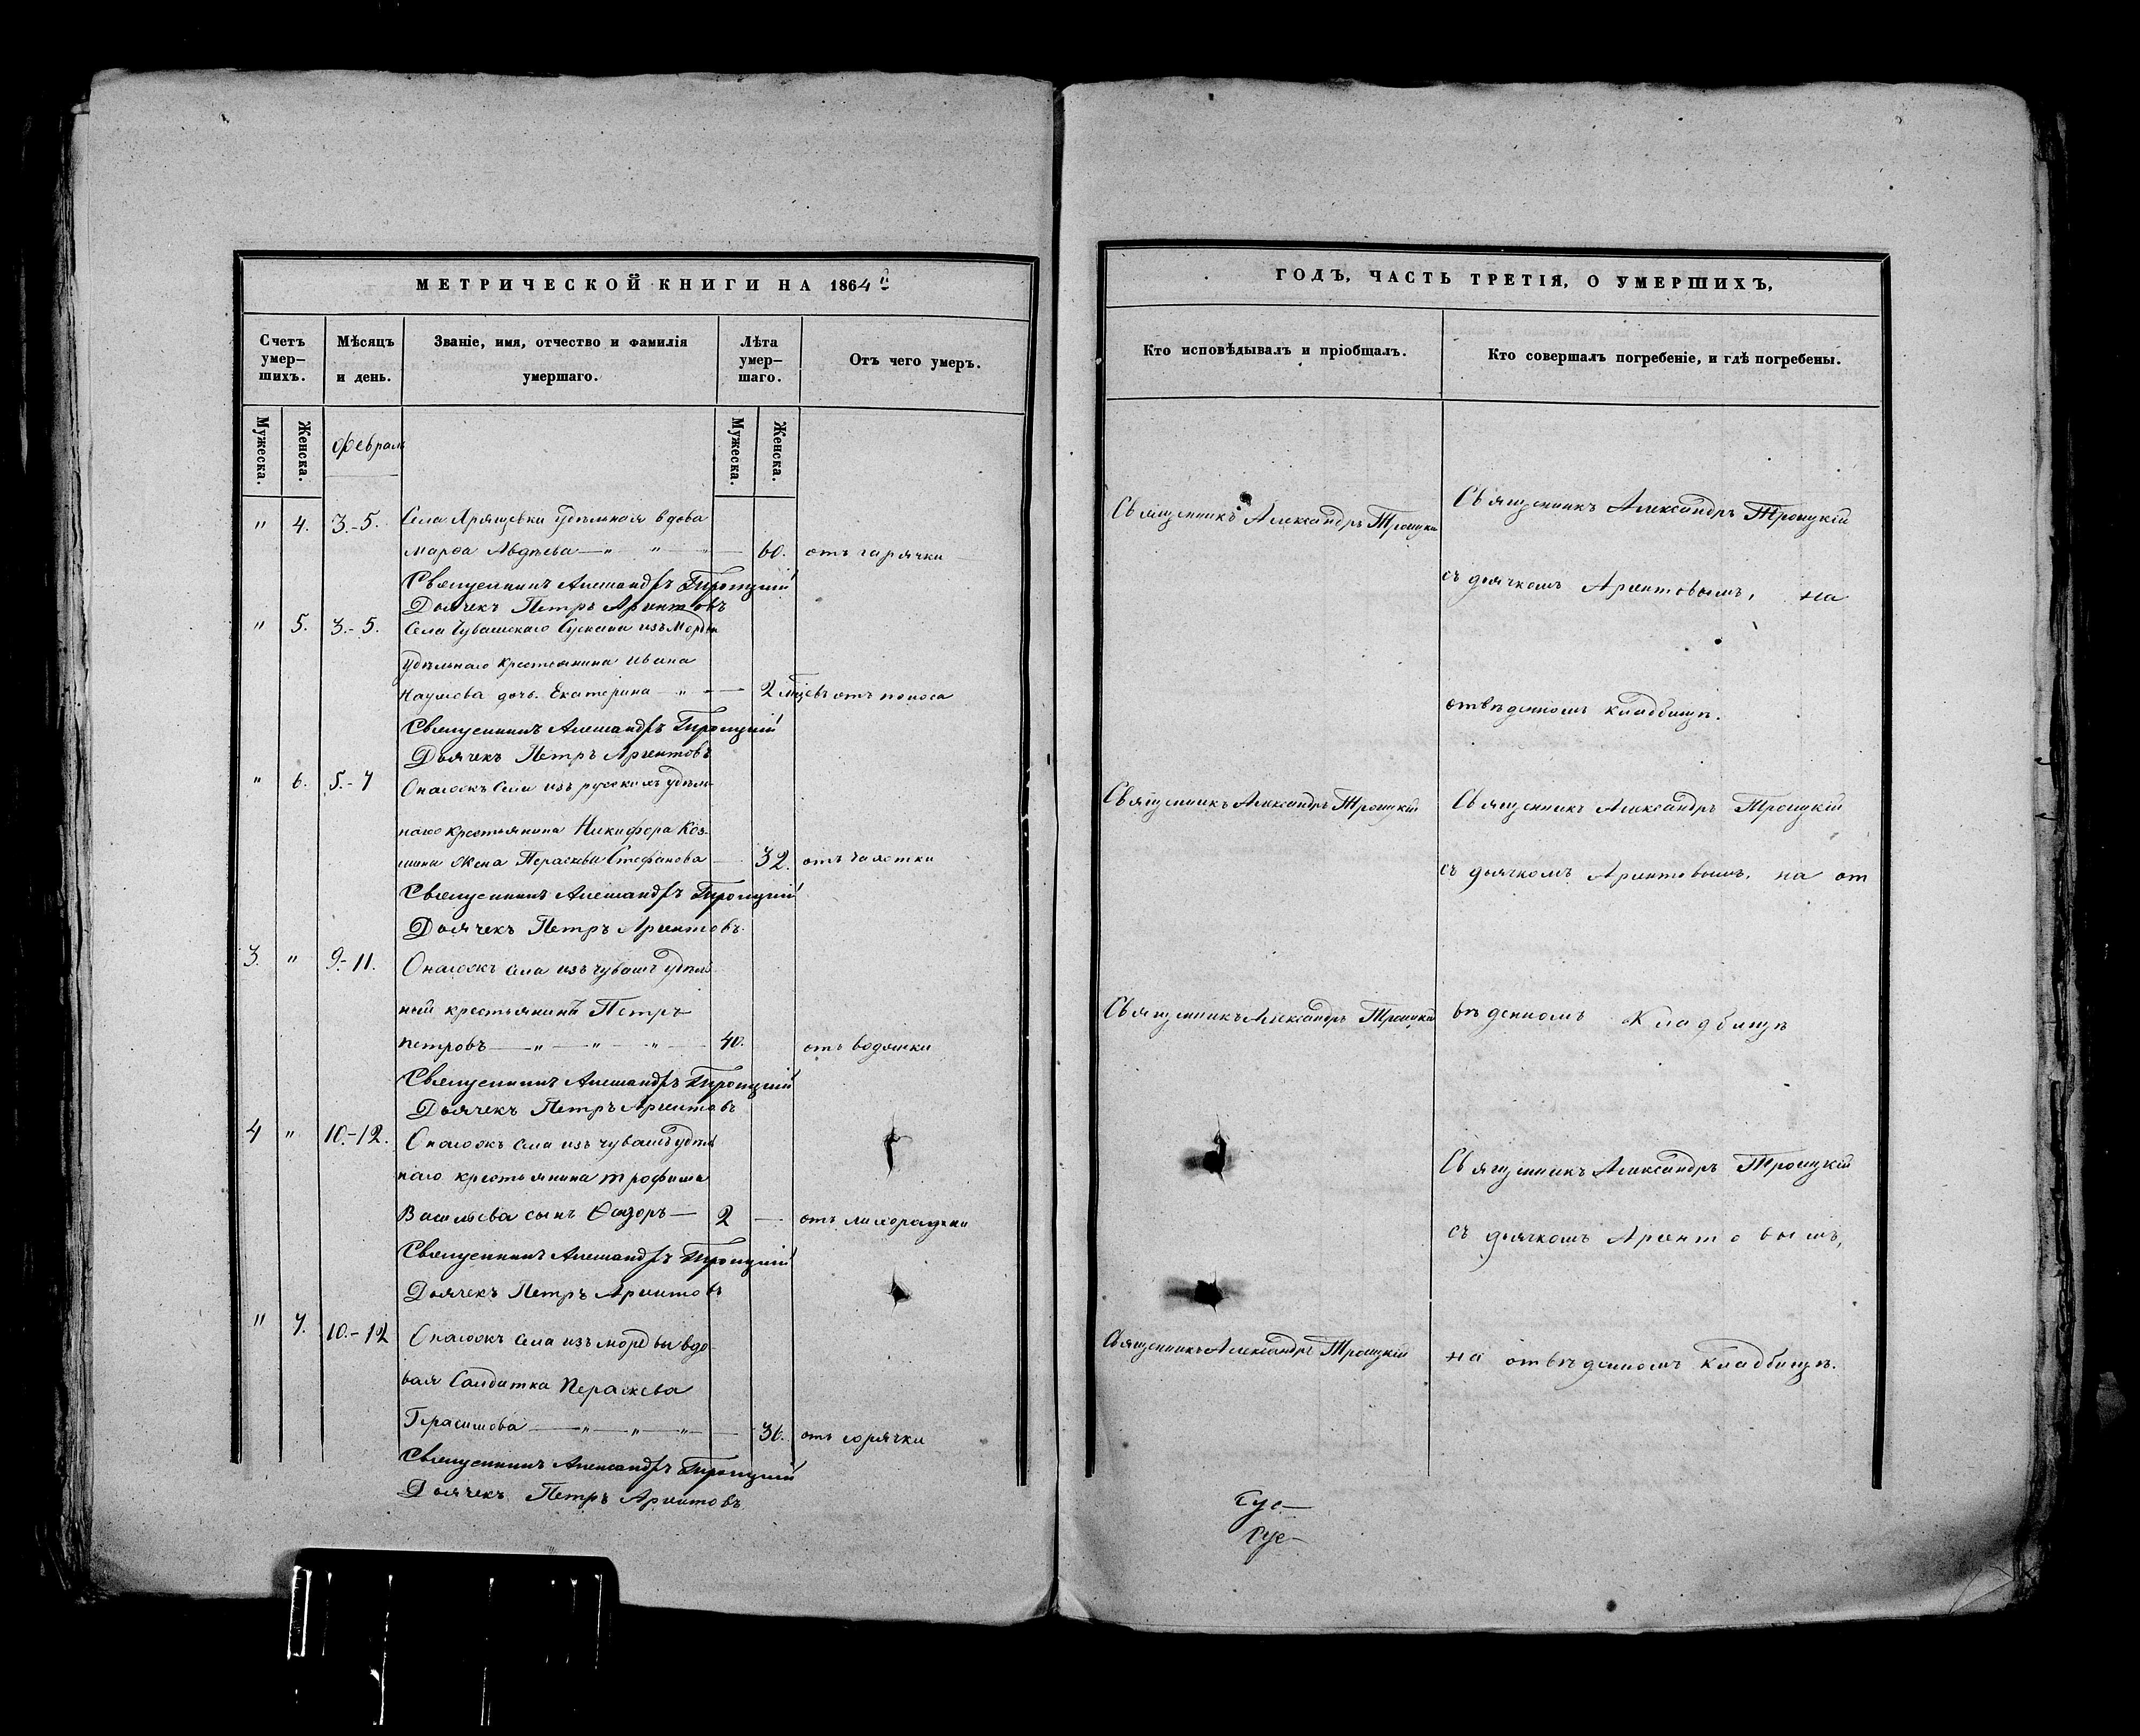 МЕТРИЧЕСКОЙ КНИГИ НА 1864й
Счетъ умер–шихъ.
Мѣсяцъ и день.
Званіе, имя, отчество и фамилія умершаго.
Лѣта умер–шаго.
Отъ чего умеръ.
Мужеска.
Женска.
Февраль
Мужеска.
Женска.
" 4. 3.-5. Села Хрящевки удѣльная вдова
Марѳа Авдѣева — " — " — 60. отъ гарячки
Священникъ Александръ Троицкій
Дьячекъ Петръ Аргентовъ
" 5. 3.-5. Села Чувашскаго Сускана изъ Мордвы
удѣльнаго крестьянина Ивана
Наумова дочь Екатерина — " — 2 мѣсев отъ поноса
Священникъ Александръ Троицкій
Дьячекъ Петръ Аргентовъ
" 6. 5.-7 Онагожъ села изъ русскихъ удѣль-
наго крестьянина Никифора Коз-
мина жена Параскева Стефанова — 32. отъ чахотки
Священникъ Александръ Троицкій
Дьячекъ Петръ Аргентовъ.
3. " 9.-11. Онагожъ села изъ чувашъ удѣль
ный крестьянинъ Петръ
Петровъ — " — " — " — 40. отъ водянки
Священникъ Александръ Троицкій
Дьячекъ Петръ Аргентовъ
4 " 10.-12. Онагожъ села изъ чувашъ удѣль
наго крестьянина Трофима
Васильева сынъ Ѳедоръ — 2 — отъ лихорадки
Священникъ Александръ Троицкій
Дьячекъ Петръ Аргентовъ
" 7. 10.-12 Онагожъ села изъ мордвы вдо-
вая Салдатка Параскева
Герасимова — " — " — " — 36. отъ горячки
Священникъ Александръ Троицкій
Дьячекъ Петръ Аргентовъ
ГОДЪ, ЧАСТЬ ТРЕТІЯ, О УМЕРШИХЪ,
Кто исповѣдывалъ и пріобщалъ.
Кто совершалъ погребеніе, и гдѣ погребены.
Священникъ Александръ Троицкій
Священникъ Александръ Троицкій
съ дьячкомъ Аргентовымъ, на
отведенномъ кладбищѣ.
Священникъ Александръ Троицкій
Священникъ Александръ Троицкій
съ дьячкомъ Аргентовымъ, на от
Священникъ Александръ Троицкій
веденномъ Кладбищѣ
Священникъ Александръ Троицкій
съ дьячкомъ Аргентовымъ,
Священникъ Александръ Троицкій
на отведенномъ кладбищѣ.
Сус–
Сус–